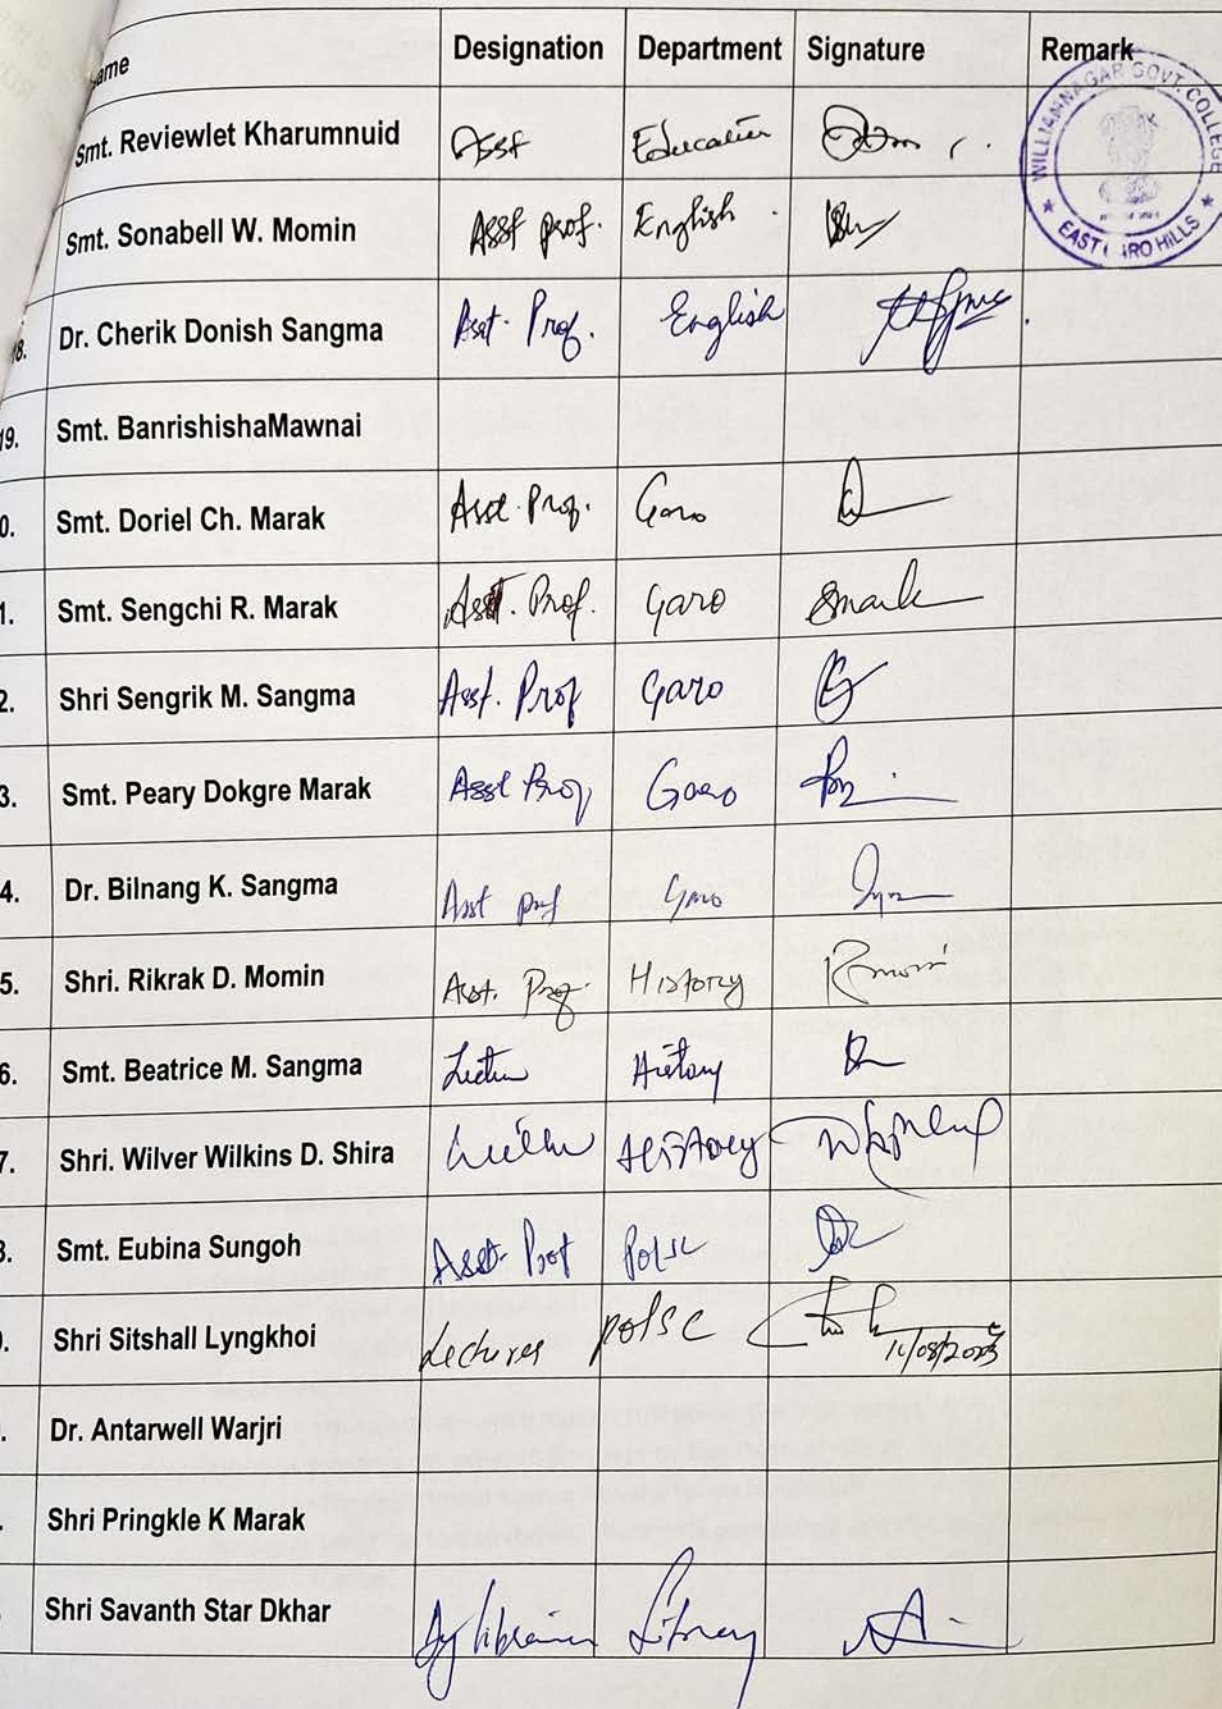 ame Designation Department Signature Remark
WILLIAMNAGAR GOVT. COLLEGE
★ EAST ARO HILLS ★
Smt. Reviewlet Kharumnuid Asst Education
Smt. Sonabell W. Momin Asst prof. English
18. Dr. Cherik Donish Sangma Asst. Prof. English
19. Smt. BanrishishaMawnai
0. Smt. Doriel Ch. Marak Asst. Prof. Garo
1. Smt. Sengchi R. Marak Asst. Prof. Garo Smarak
2. Shri Sengrik M. Sangma Asst. Prof Garo
3. Smt. Peary Dokgre Marak Asst Prof Garo
4. Dr. Bilnang K. Sangma Asst prof Garo
5. Shri. Rikrak D. Momin Asst. Prof. History Rmomin
6. Smt. Beatrice M. Sangma History
7. Shri. Wilver Wilkins D. Shira History
8. Smt. Eubina Sungoh Asst. Prof Polsc
9. Shri Sitshall Lyngkhoi Lecturer polsc 11/08/2023
. Dr. Antarwell Warjri
. Shri Pringkle K Marak
Shri Savanth Star Dkhar librarian Library